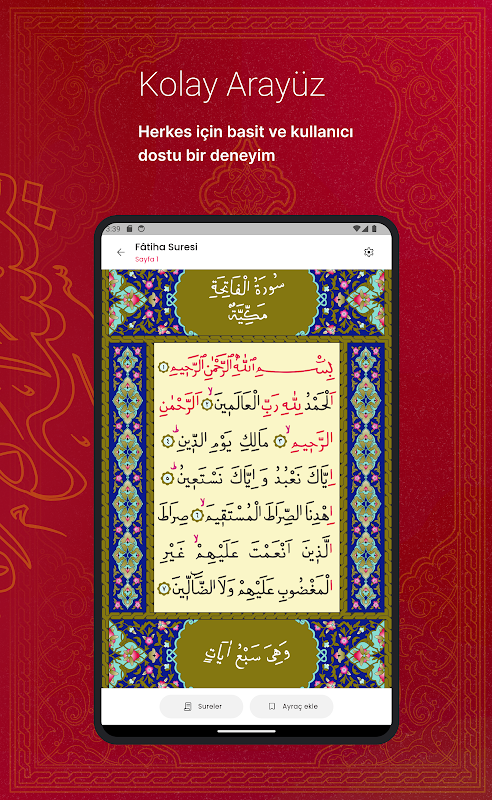 Kolay Arayüz
Herkes için basit ve kullanıcı
dostu bir deneyim
3:39
Fâtiha Suresi
Sayfa 1
سُورَةُ الْفَاتِحَةِ
مَكِّيَّةٌ
بِسْمِ اللّٰهِ الرَّحْمٰنِ الرَّح۪يمِ ﴿١﴾
اَلْحَمْدُ لِلّٰهِ رَبِّ الْعَالَم۪ينَۙ ﴿٢﴾ اَلرَّحْمٰنِ
الرَّح۪يمِۙ ﴿٣﴾ مَالِكِ يَوْمِ الدّ۪ينِۜ ﴿٤﴾
اِيَّاكَ نَعْبُدُ وَ اِيَّاكَ نَسْتَع۪ينُۜ ﴿٥﴾
اِهْدِنَا الصِّرَاطَ الْمُسْتَق۪يمَۙ ﴿٦﴾ صِرَاطَ
الَّذ۪ينَ اَنْعَمْتَ عَلَيْهِمْۙ غَيْرِ
الْمَغْضُوبِ عَلَيْهِمْ وَلَا الضَّٓالّ۪ينَ ﴿٧﴾
وَهِىَ سَبْعُ اٰيَاتٍ
Sureler
Ayraç ekle